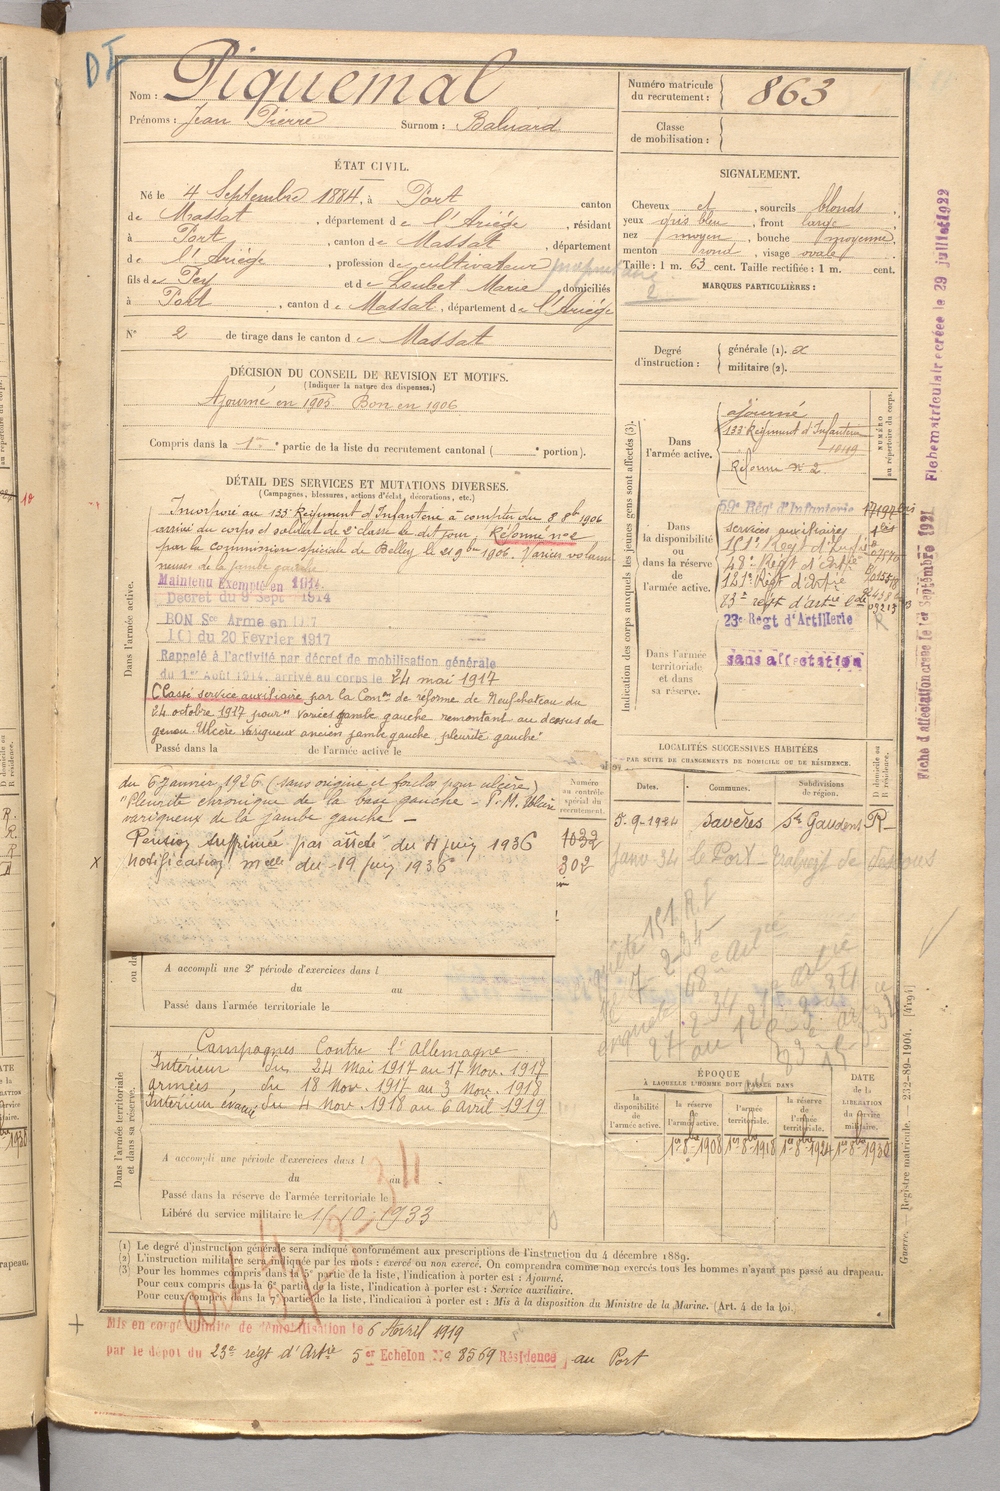 DI
Nom : Piquemal
Prénoms : Jean Pierre Surnom : Baluard
Numéro matricule du recrutement : 863
Classe de mobilisation :
ÉTAT CIVIL.
Né le 4 Septembre 1884, à Port canton
de Massat, département de l'Ariége, résidant
à Port, canton de Massat, département
de l'Ariége, profession de cultivateur
fils de Pey et de Loubet Marie domiciliés
à Port, canton de Massat, département de l'Ariége
N° 2 de tirage dans le canton de Massat
SIGNALEMENT.
Cheveux et, sourcils blonds
yeux gris bleu, front large
nez moyen, bouche moyenne
menton rond, visage ovale
Taille : 1 m. 63 cent. Taille rectifiée : 1 m. cent.
2
MARQUES PARTICULIÈRES :
Degré d'instruction : générale (1).
militaire (2).
DÉCISION DU CONSEIL DE REVISION ET MOTIFS.
(Indiquer la nature des dispenses.)
Ajourné en 1905 Bon en 1906
Compris dans la 1re partie de la liste du recrutement cantonal ( e portion).
DÉTAIL DES SERVICES ET MUTATIONS DIVERSES.
(Campagnes, blessures, actions d'éclat, décorations, etc.)
Dans l'armée active.
Incorporé au 133e Régiment d'Infanterie à compter du 8 8bre 1906
arrivé au corps et soldat de 2e classe le dit jour, Réformé n°2
par la commission spéciale de Belley le 21 9bre 1906. Varices volumi
neuses de la jambe gauche
Maintenu Exempté en 1914.
Décret du 9 Sept 1914
BON Sce Armé en 1917
Loi du 20 Février 1917
Rappelé à l'activité par décret de mobilisation générale
du 1er Août 1914. arrivé au corps le 24 mai 1917
Classé service auxiliaire par la Comon de réforme de Neufchateau du
24 octobre 1917 pour "varices jambe gauche remontant au dessus du
genou. Ulcère variqueux ancien jambe gauche, pleurite gauche"
Passé dans la de l'armée active le
du 6 janvier 1926 (sans origine et forclos pour ulcère)
"Pleurite chronique de la base gauche - P.M. Ulcère
variqueux de la jambe gauche -
Pension supprimée par arrêté du 4 juin 1936
Notification melle du 19 juin 1936
Indication des corps auxquels les jeunes gens sont affectés (3).
NUMÉRO au répertoire du corps.
Dans l'armée active.
ajourné
133e Régiment d'Infanterie
10119
Réformé n° 2
Dans la disponibilité ou dans la réserve de l'armée active.
59e Régt d'Infanterie
services auxiliaires
151e Régt d'Infie
48e Régt d'Artie
121e Régt d'Artie
83e régt d'artie
23e Régt d'Artillerie
R
Dans l'armée territoriale et dans sa réserve.
sans affectation
LOCALITÉS SUCCESSIVES HABITÉES
PAR SUITE DE CHANGEMENTS DE DOMICILE OU DE RÉSIDENCE.
Numéro au contrôle spécial du recrutement.
1032
302
Dates. Communes. Subdivisions de région. D domicile ou R résidence.
5-9-1924 Savères St Gaudens R
Janv 34 le Port
A accompli une 2e période d'exercices dans l
du au
Passé dans l'armée territoriale le
Dans l'armée territoriale et dans sa réserve.
Campagnes Contre l'Allemagne
Intérieur du 24 Mai 1917 au 17 Nov. 1917
armées, du 18 Nov. 1917 au 3 Nov. 1918
Intérieur évacué du 4 Nov. 1918 au 6 Avril 1919
A accompli une période d'exercices dans l
du au
Passé dans la réserve de l'armée territoriale le
Libéré du service militaire le 1/10/1933
ÉPOQUE
À LAQUELLE L'HOMME DOIT PASSER DANS
DATE de la LIBÉRATION du service militaire.
la disponibilité de l'armée active. la réserve de l'armée active. l'armée territoriale. la réserve de l'armée territoriale.
1er 8bre 1908 1er 8bre 1918 1er 8bre 1924 1er 8bre 1930
(1) Le degré d'instruction générale sera indiqué conformément aux prescriptions de l'instruction du 4 décembre 1889.
(2) L'instruction militaire sera indiquée par les mots : exercé ou non exercé. On comprendra comme non exercés tous les hommes n'ayant pas passé au drapeau.
(3) Pour les hommes compris dans la 5e partie de la liste, l'indication à porter est : Ajourné.
Pour ceux compris dans la 6e partie de la liste, l'indication à porter est : Service auxiliaire.
Pour ceux compris dans la 7e partie de la liste, l'indication à porter est : Mis à la disposition du Ministre de la Marine. (Art. 4 de la loi.)
Mis en congé illimité de démobilisation le 6 Avril 1919
par le dépôt du 23e régt d'Artie 5er Echelon No 8569 Résidence, au Port
Fiche matriculaire créée le 29 juillet 1922
Fiche d'affectation créée le 1er Septembre 1921
Guerre. — Registre matricule. — 232-89-1904. [4194]